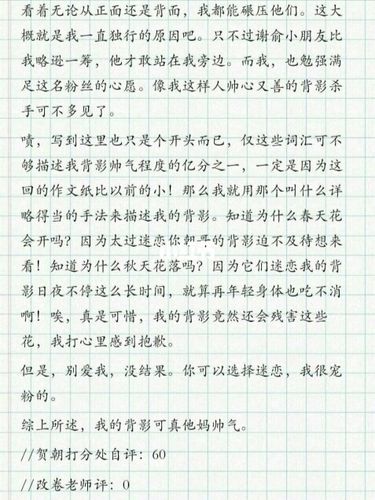 看着无论从正面还是背面，我都能碾压他们。这大
概就是我一直独行的原因吧。只不过谢俞小朋友比
我略逊一筹，他才敢站在我旁边。而我，也勉强满
足这名粉丝的心愿。像我这样人帅心又善的背影杀
手可不多见了。
啧，写到这里也只是个开头而已，仅这些词汇可不
够描述我背影帅气程度的亿分之一，一定是因为这
回的作文纸比以前的小！那么我就用那个叫什么详
略得当的手法来描述我的背影。知道为什么春天花
会开吗？因为太过迷恋你朝哥的背影迫不及待想来
看！知道为什么秋天花落吗？因为它们迷恋我的背
影日夜不停这么长时间，就算再年轻身体也吃不消
啊！唉，真是可惜，我的背影竟然还会残害这些
花，我打心里感到抱歉。
但是，别爱我，没结果。你可以选择迷恋，我很宠
粉的。
综上所述，我的背影可真他妈帅气。
//贺朝打分处自评：60
//改卷老师评：0